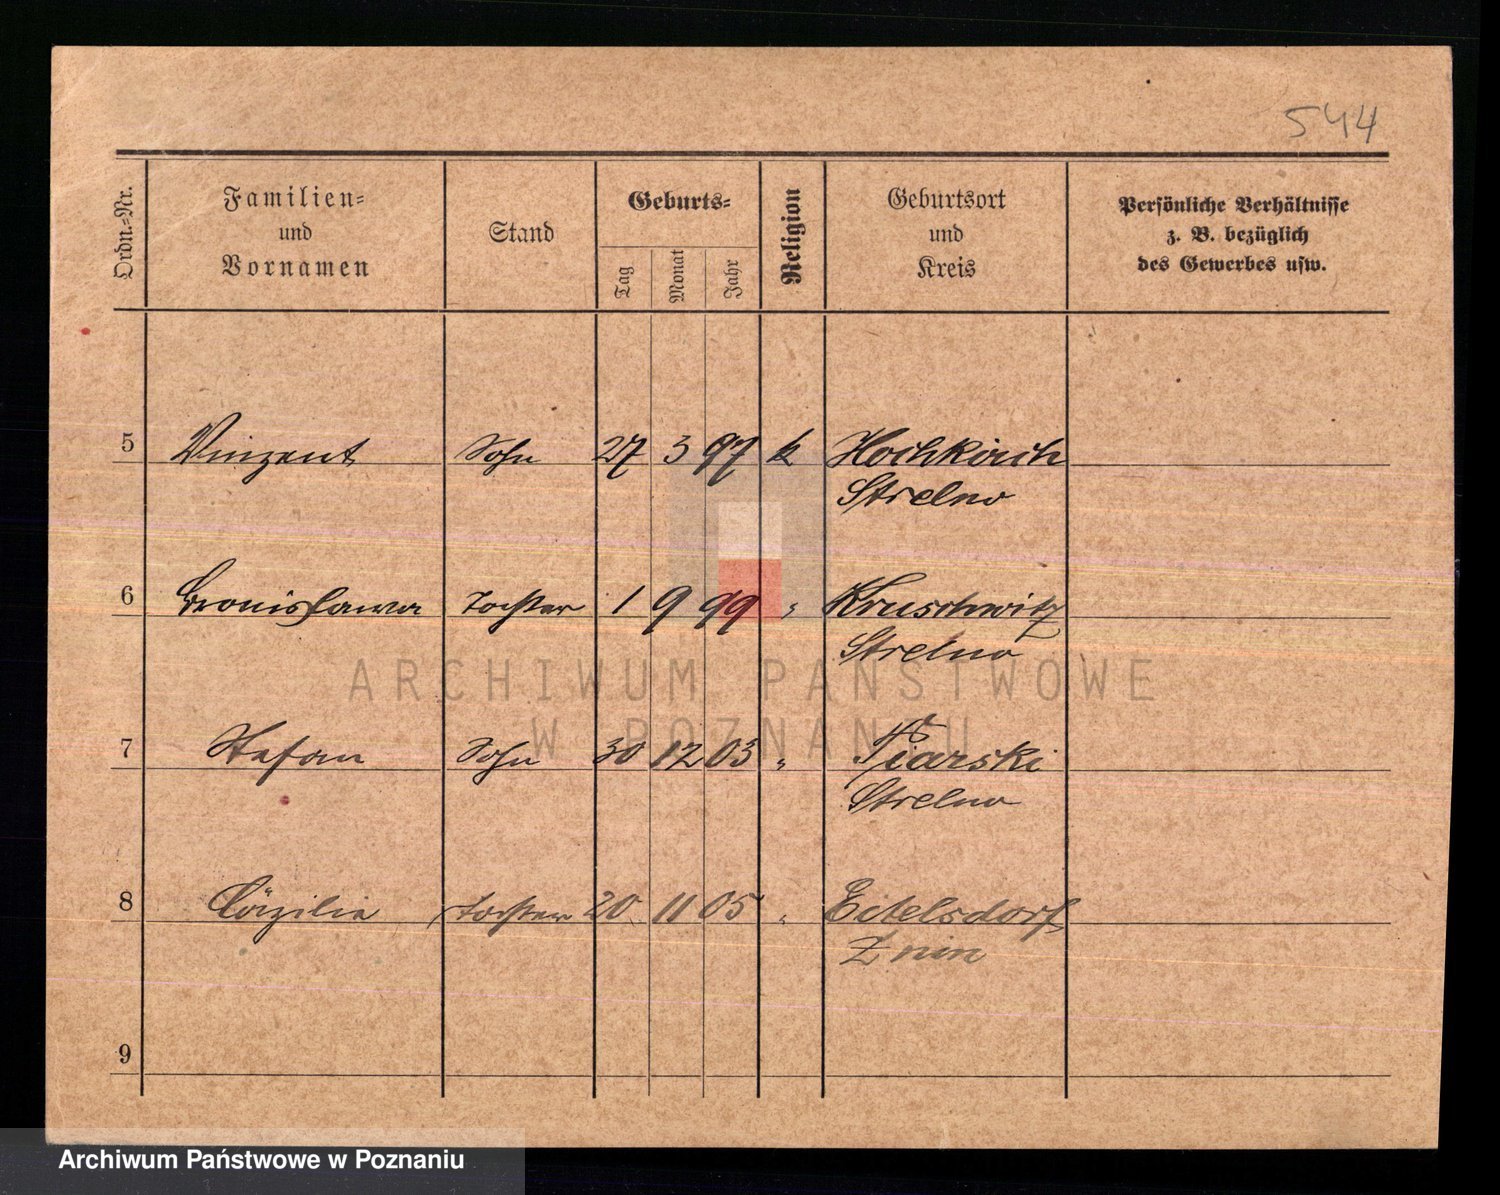 544
Ordn.-Nr.
Familien-
und
Vornamen
Stand
Geburts-
Tag
Monat
Jahr
Religion
Geburtsort
und
Kreis
Persönliche Verhältnisse
z. B. bezüglich
des Gewerbes usw.
5 Vinzent Sohn 27 3 97 k Hochkirch
Strelno
6 Bronislawa Tochter 1 9 99 " Kruschwitz
Strelno
ARCHIWUM PAŃSTWOWE
W POZNANIU
7 Stefan Sohn 30 12 03 " Piarski
Strelno
8 Cäzilie Tochter 20 11 05 " Eitelsdorf
Znin
9
Archiwum Państwowe w Poznaniu